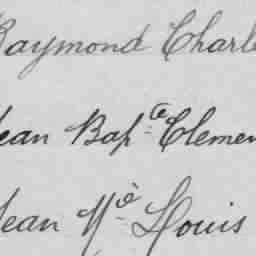 Raymond Charle
Jean Bap.te Clemen
Jean Mie Louis